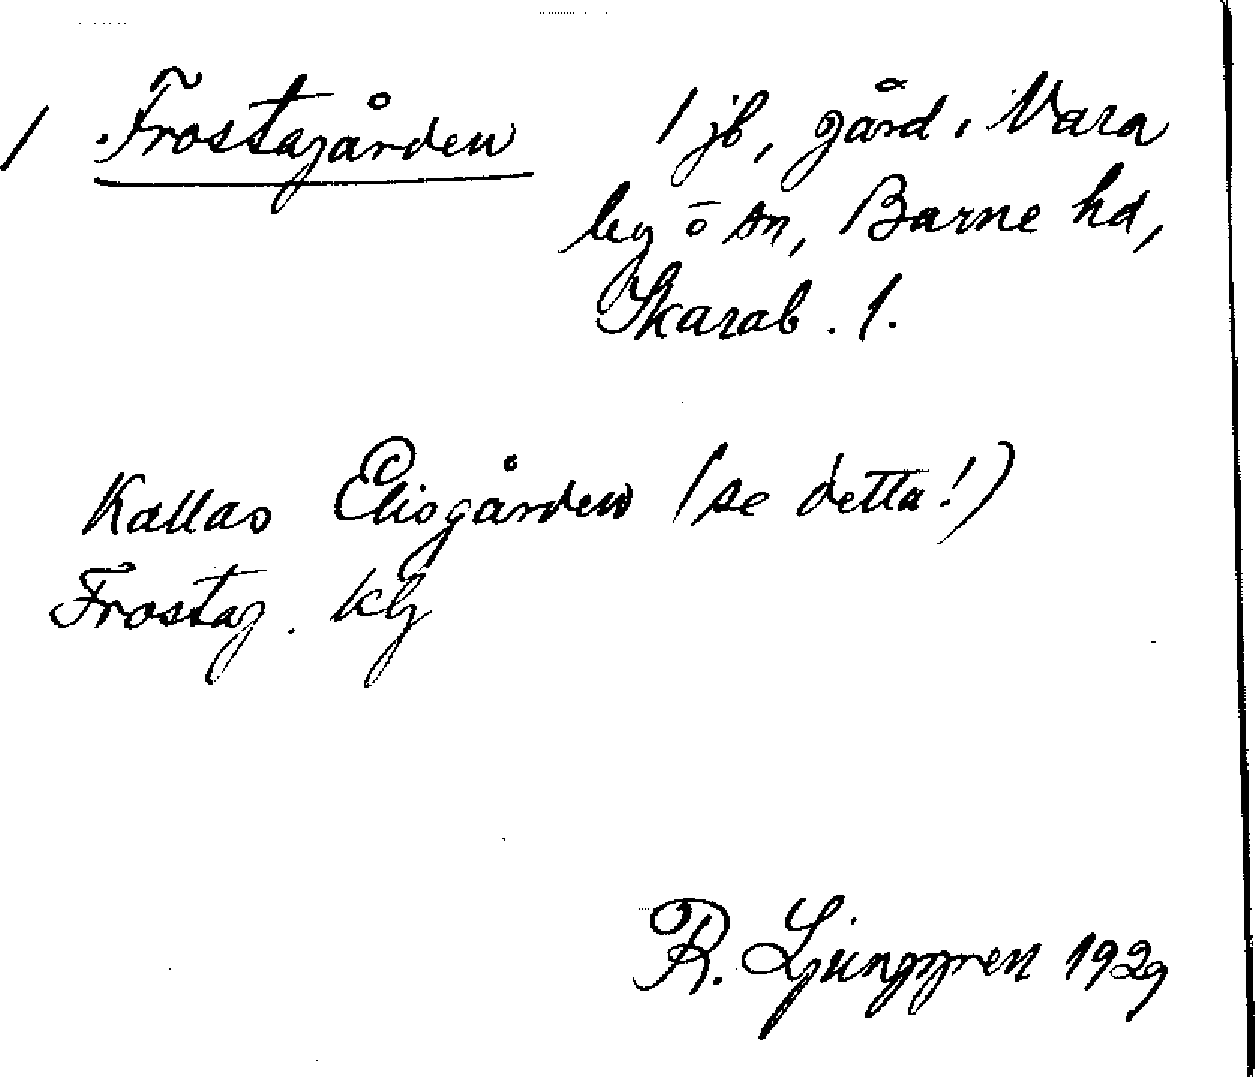 1 Frostagården 1 jb, gård i Vara
by o sn, Barne hd,
Skarab. l.
Kallas Elisgården (se detta!)
Frostag. kg
R. Ljunggren 1929